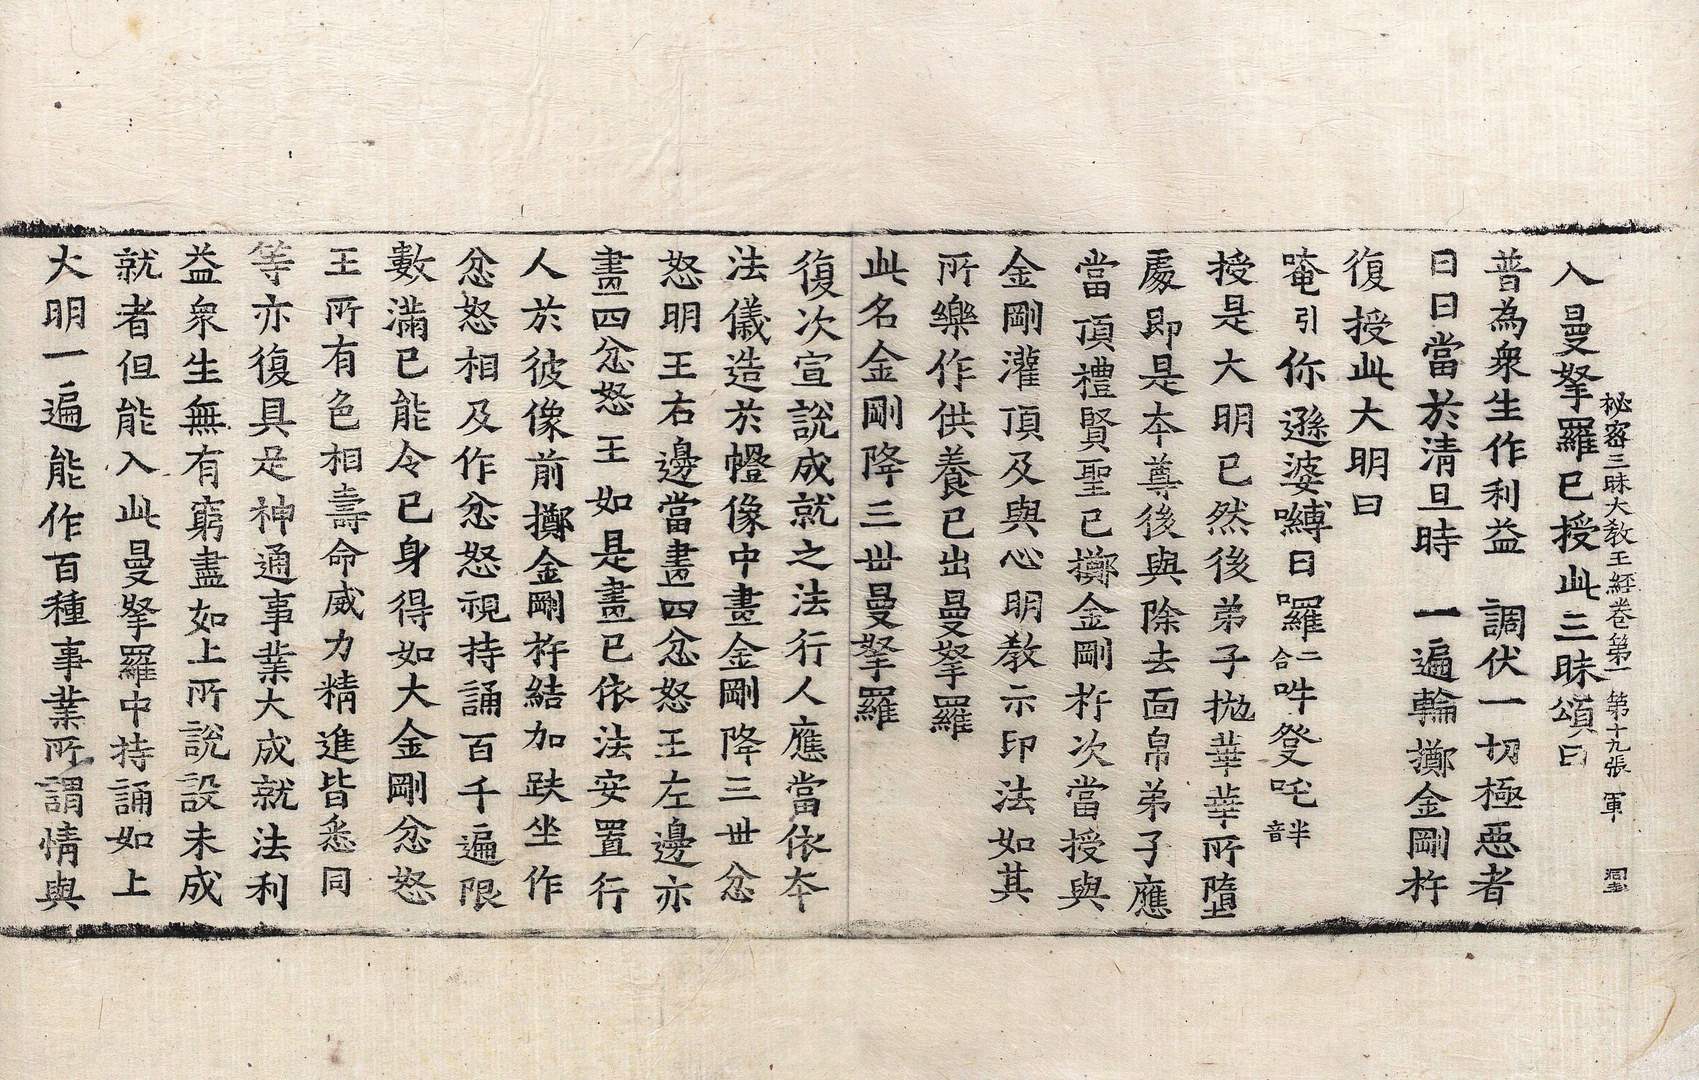 秘密三昧大教王經卷第一 第十九張 軍
入曼拏羅已授此三昧頌曰
普為衆生作利益 調伏一切極惡者
日日當於清旦時 一遍輪擲金剛杵
復授此大明曰
唵引你遜婆嚩日囉二合吽發吒半音
授是大明已然後弟子拋華華所墮
處即是本尊後與除去面帛弟子應
當頂禮賢聖已擲金剛杵次當授與
金剛灌頂及與心明教示印法如其
所樂作供養已出曼拏羅
此名金剛降三世曼拏羅
復次宣說成就之法行人應當依本
法儀造於㡧像中畫金剛降三世忿
怒明王右邊當畫四忿怒王左邊亦
畫四忿怒王如是畫已依法安置行
人於彼像前擲金剛杵結加趺坐作
忿怒相及作忿怒視持誦百千遍限
數滿已能令已身得如大金剛忿怒
王所有色相壽命威力精進皆悉同
等亦復具足神通事業大成就法利
益衆生無有窮盡如上所說設未成
就者但能入此曼拏羅中持誦如上
大明一遍能作百種事業所謂情與